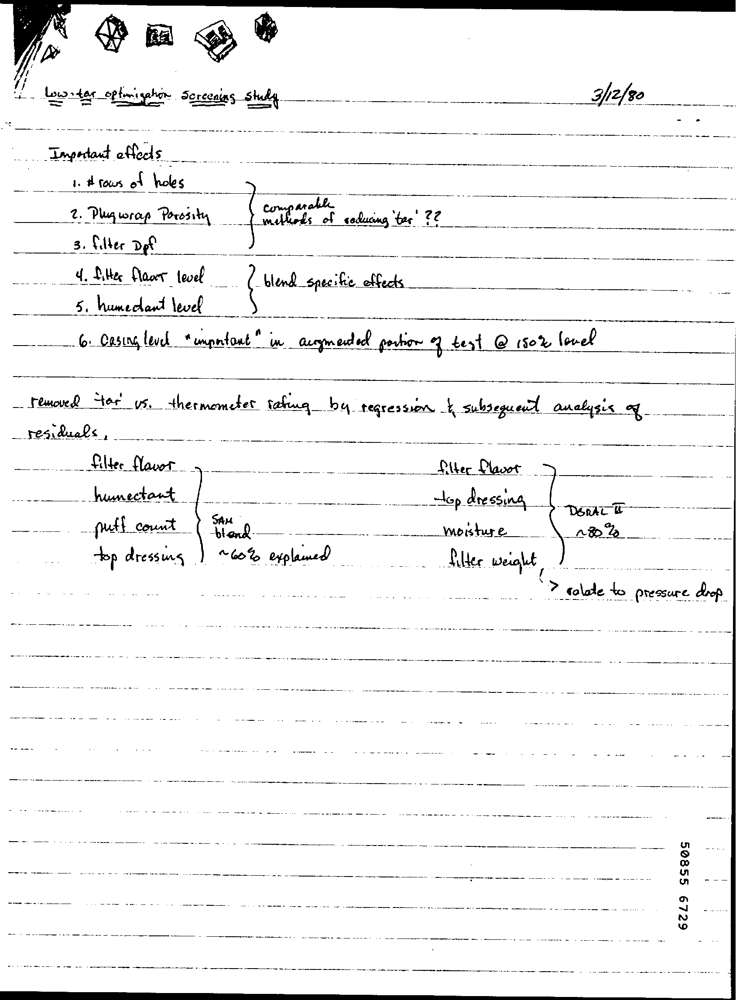 Low-tar optimization Screening Study 3/12/80
Important effects
1. # rows of holes
2. Plugwrap Porosity
3. filter Dpf
comparable
methods of reducing 'tar' ??
4. filter flavor level
5. humectant level
blend specific effects
6. Casing level "important" in augmented portion of test @ 150% level
removed 'tar' vs. thermometer rating by regression & subsequent analysis of
residuals,
filter flavor
humectant
puff count
top dressing
SAM
blend
~60% explained
filter flavor
top dressing
moisture
filter weight
II
~80%
> relate to pressure drop
50855 6729